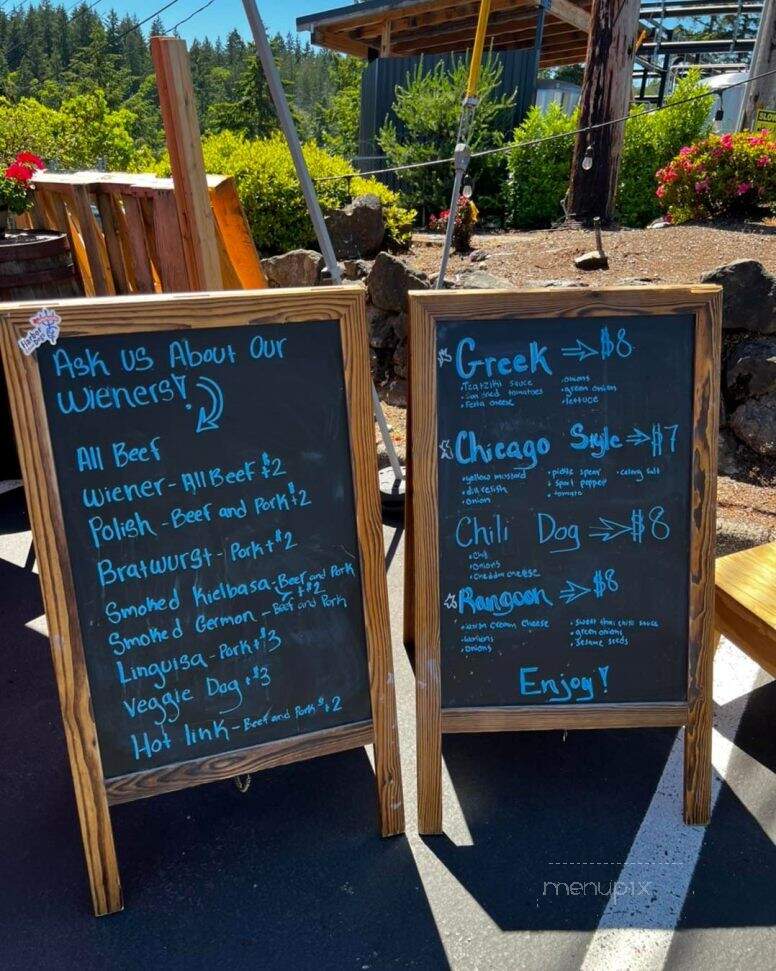 Harbor Dogs
Ask us About Our
Wieners!
All Beef
Wiener - All Beef + $2
Polish - Beef and Pork + $2
Bratwurst - Pork + $2
Smoked Kielbasa - Beef and Pork
+ $2
Smoked German - Beef and Pork
Linguisa - Pork + $3
Veggie Dog + $3
Hot link - Beef and Pork $ + 2
Greek → $8
• Tzatziki sauce
• Sun dried tomatoes
• Feta cheese
• onions
• green onion
• lettuce
Chicago Style → $7
• yellow mustard
• dill relish
• onion
• pickle spear
• sport pepper
• tomato
• celery salt
Chili Dog → $8
• Chili
• onions
• cheddar cheese
Rangoon → $8
• cream cheese
• wontons
• onions
• sweet thai chili sauce
• green onions
• sesame seeds
Enjoy!
SLOW
menupix